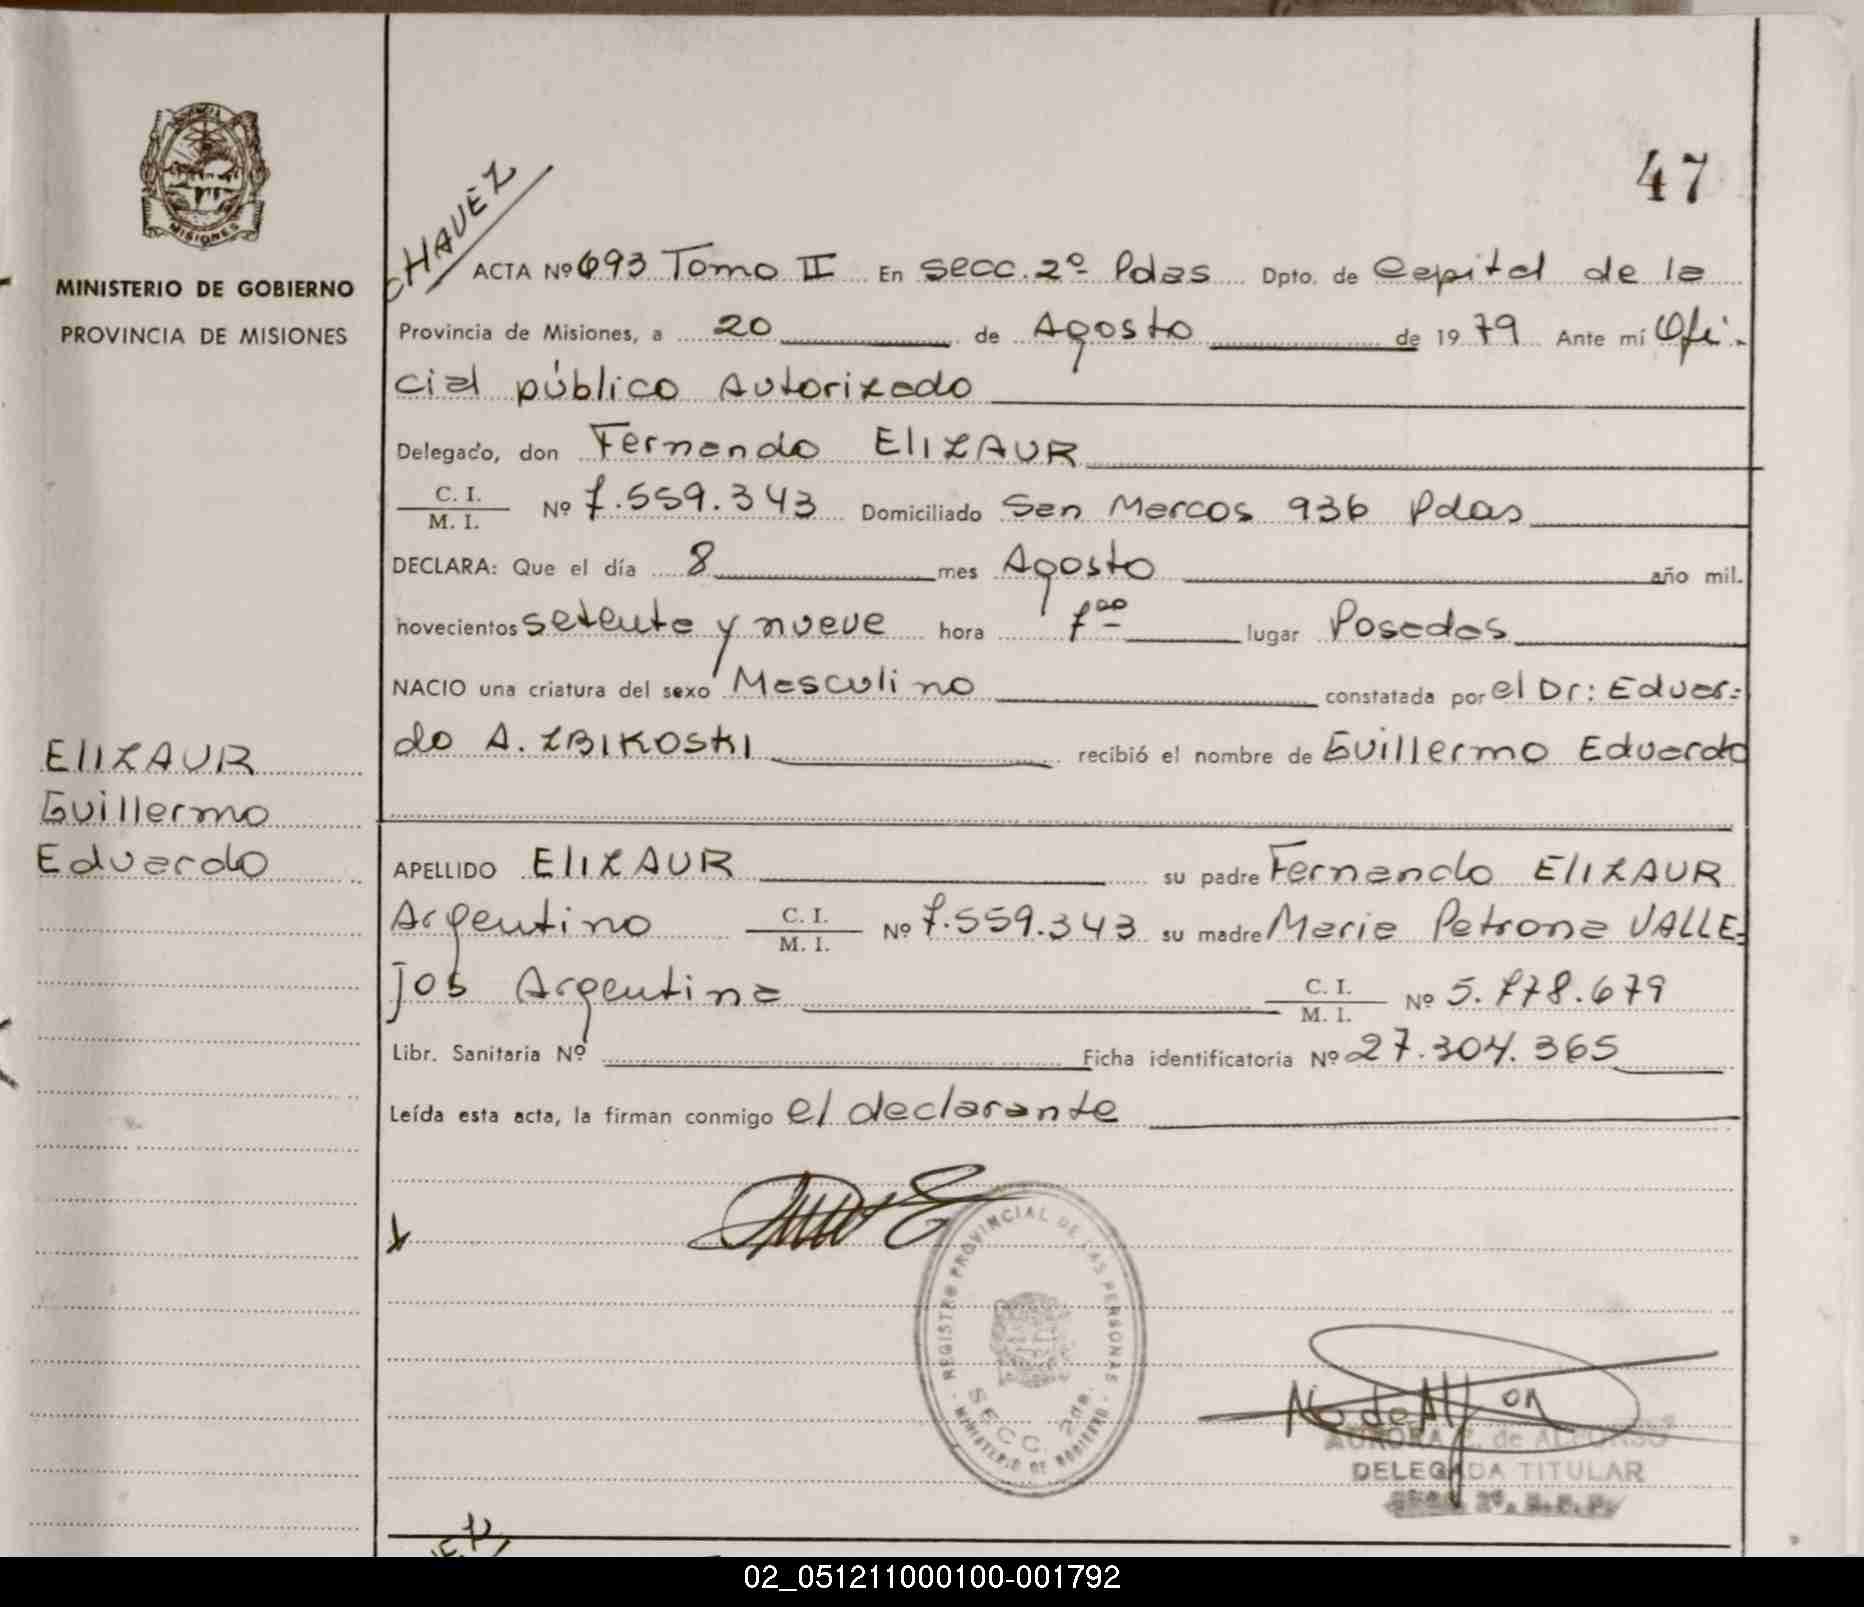 47
CHAVEZ
MINISTERIO DE GOBIERNO
PROVINCIA DE MISIONES
ACTA Nº 693 Tomo II En secc. 2º Pdas Dpto. de Capital de la
Provincia de Misiones, a 20 de Agosto de 1979 Ante mí Ofi-
cial público Autorizado
Delegado, don Fernando ElIZAUR
C. I.
M. I. Nº 7.559.343 Domiciliado San Marcos 936 Pdas
DECLARA: Que el día 8 mes Agosto año mil.
novecientos setenta y nueve hora 7⁰⁰ lugar Posadas
NACIO una criatura del sexo Masculino constatada por el Dr: Eduar=
do A. ZBIKOSKI recibió el nombre de Guillermo Eduardo
ElIZAUR
Guillermo
Eduardo
APELLIDO ElIZAUR su padre Fernando ElIZAUR
Argentino C. I.
M. I. Nº 7.559.343 su madre Maria Petrona VALLE=
jos Argentina C. I.
M. I. Nº 5.778.679
Libr. Sanitaria Nº Ficha identificatoria Nº 27.304.365
Leída esta acta, la firman conmigo el declarante
REGISTRO PROVINCIAL DE LAS PERSONAS
SECC. 2da.
MINISTERIO DE GOBIERNO
de ALFONSO
DELEGADA TITULAR
02_051211000100-001792